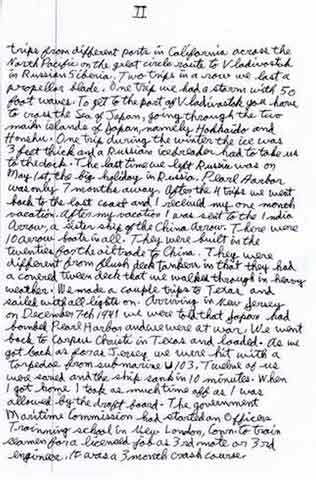 II
trips from different ports in California across the
North Pacific on the great circle route to Vladivostok
in Russian Siberia. Two trips in a row we lost a
propellor blade. One trip we had a storm with 50
foot waves. To get to the port of Vladivostok you have
to cross the Sea of Japan, going through the two
main islands of Japan, namely Hokkaido and
Honshu. One trip during the winter the ice was
3 feet thick and a Russian icebreaker had to take us
to the dock. The last time we left Russia was on
May 1st, the big holiday in Russia. Pearl Harbor
was only 7 months away. After the 4 trips we went
back to the east coast and I received my one month
vacation. After my vacation I was sent to the India
Arrow, a sister ship of the China Arrow. There were
10 arrow boats in all. They were built in the
twenties for the oil trade to China. They were
different from flush deck tankers in that they had
a covered tween deck that we walked through in heavy
weather. We made a couple trips to Texas and
sailed with all lights on. Arriving in New Jersey
on December 7th 1941 we were told that Japan had
bombed Pearl Harbor and we were at war. We went
back to Corpus Christi in Texas and loaded. As we
got back as far as Jersey, we were hit with a
torpedoe from submarine U103. Twelve of us
were saved and the ship sank in 10 minutes. When
I got home I took as much time off as I was
allowed by the draft board. The government
Maritime Commission had started an Officers
Trainning school in New London, Conn. to train
seamen for a licensed job as 3rd mate or 3rd
engineer. It was a 3 month crash course.